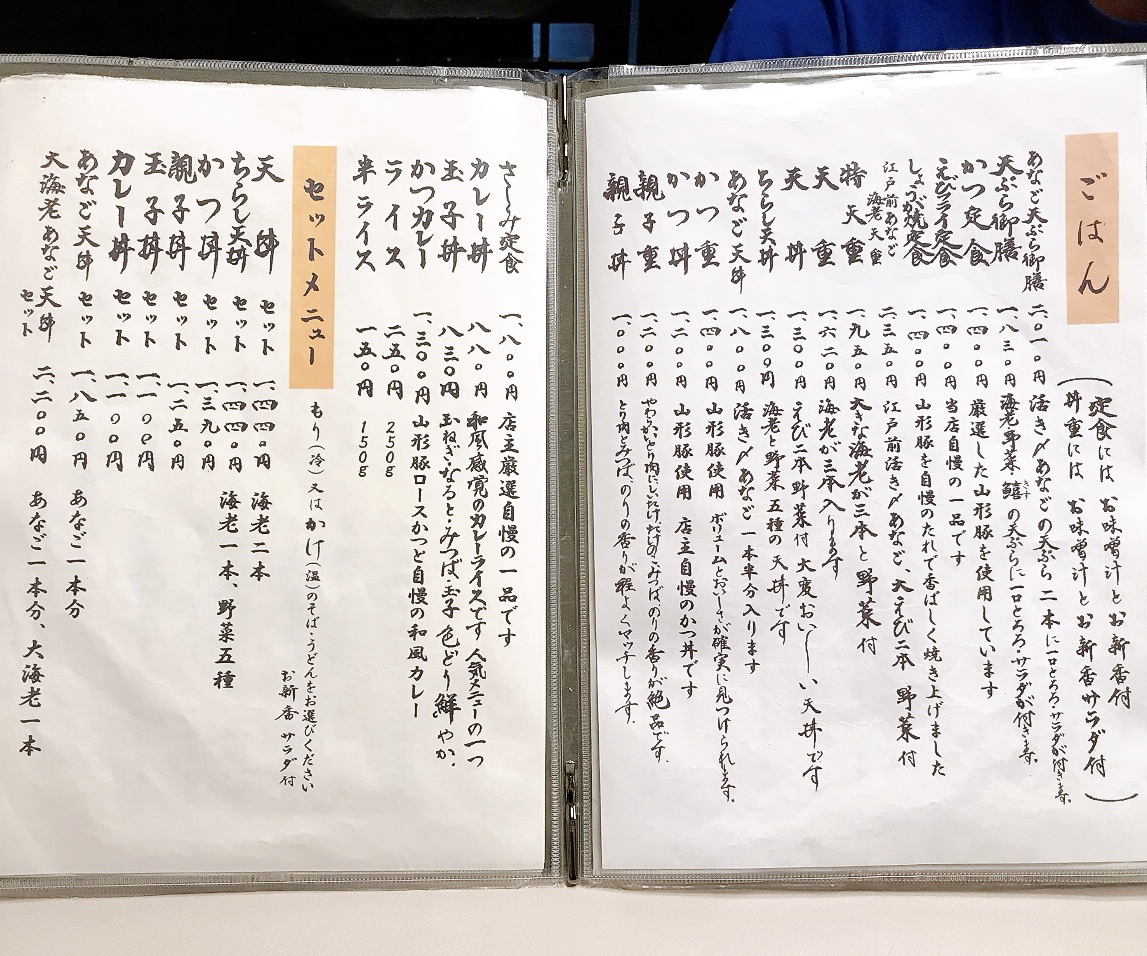 ごはん
（定食には お味噌汁とお新香付
丼重には お味噌汁とお新香サラダ付）
あなご天ぷら御膳 二、〇一〇円 活き〆あなごの天ぷら 二本に一口とろろ・サラダが付きます。
天ぷら御膳 一、八三〇円 海老野菜・鱚きすの天ぷらに一口とろろ・サラダが付きます。
かつ定食 一、四〇〇円 厳選した山形豚を使用しています
えびフライ定食 一、四〇〇円 当店自慢の一品です
しょうが焼定食 一、四〇〇円 山形豚を自慢のたれで香ばしく焼き上げました
江戸前あなご海老天重 二、三五〇円 江戸前活き〆あなご、大えび二本 野菜付
特天重 一、九五〇円 大きな海老が三本と野菜付
天重 一、六二〇円 海老が三本入ります
天丼 一、三〇〇円 えび二本野菜付 大変おいし〜い天丼です
ちらし天丼 一、三〇〇円 海老と野菜五種の天丼です
あなご天丼 一、八〇〇円 活き〆あなご一本半分入ります
かつ重 一、四〇〇円 山形豚使用 ボリュームとおいしさが確実に見つけられます。
かつ丼 一、二〇〇円 山形豚使用 店主自慢のかつ丼です
親子重 一、二〇〇円 やわらかいとり肉にしいたけたけのこみつばのりの香りが絶品です。
親子丼 一、〇〇〇円 とり肉とみつば、のりの香りが程よくマッチします。
さしみ定食 一、八〇〇円 店主厳選自慢の一品です
カレー丼 八八〇円 和風感覚のカレーライスです 人気メニューの一つ
玉子丼 八三〇円 玉ねぎ・なると・みつば、玉子色どり鮮やか。
かつカレー 一、三〇〇円 山形豚ロースかつと自慢の和風カレー
ライス 二五〇円 250g
半ライス 一五〇円 150g
セットメニュー
もり（冷）又はかけ（温）のそば・うどんをお選びください
お新香 サラダ付
天丼セット 一、四四〇円 海老二本
ちらし天丼セット 一、四四〇円 海老一本、野菜五種
かつ丼セット 一、三九〇円
親子丼セット 一、二五〇円
玉子丼セット 一、一〇〇円
カレー丼セット 一、一〇〇円
あなご天丼セット 一、八五〇円 あなご一本分
大海老あなご天丼セット 二、二〇〇円 あなご一本分、大海老一本